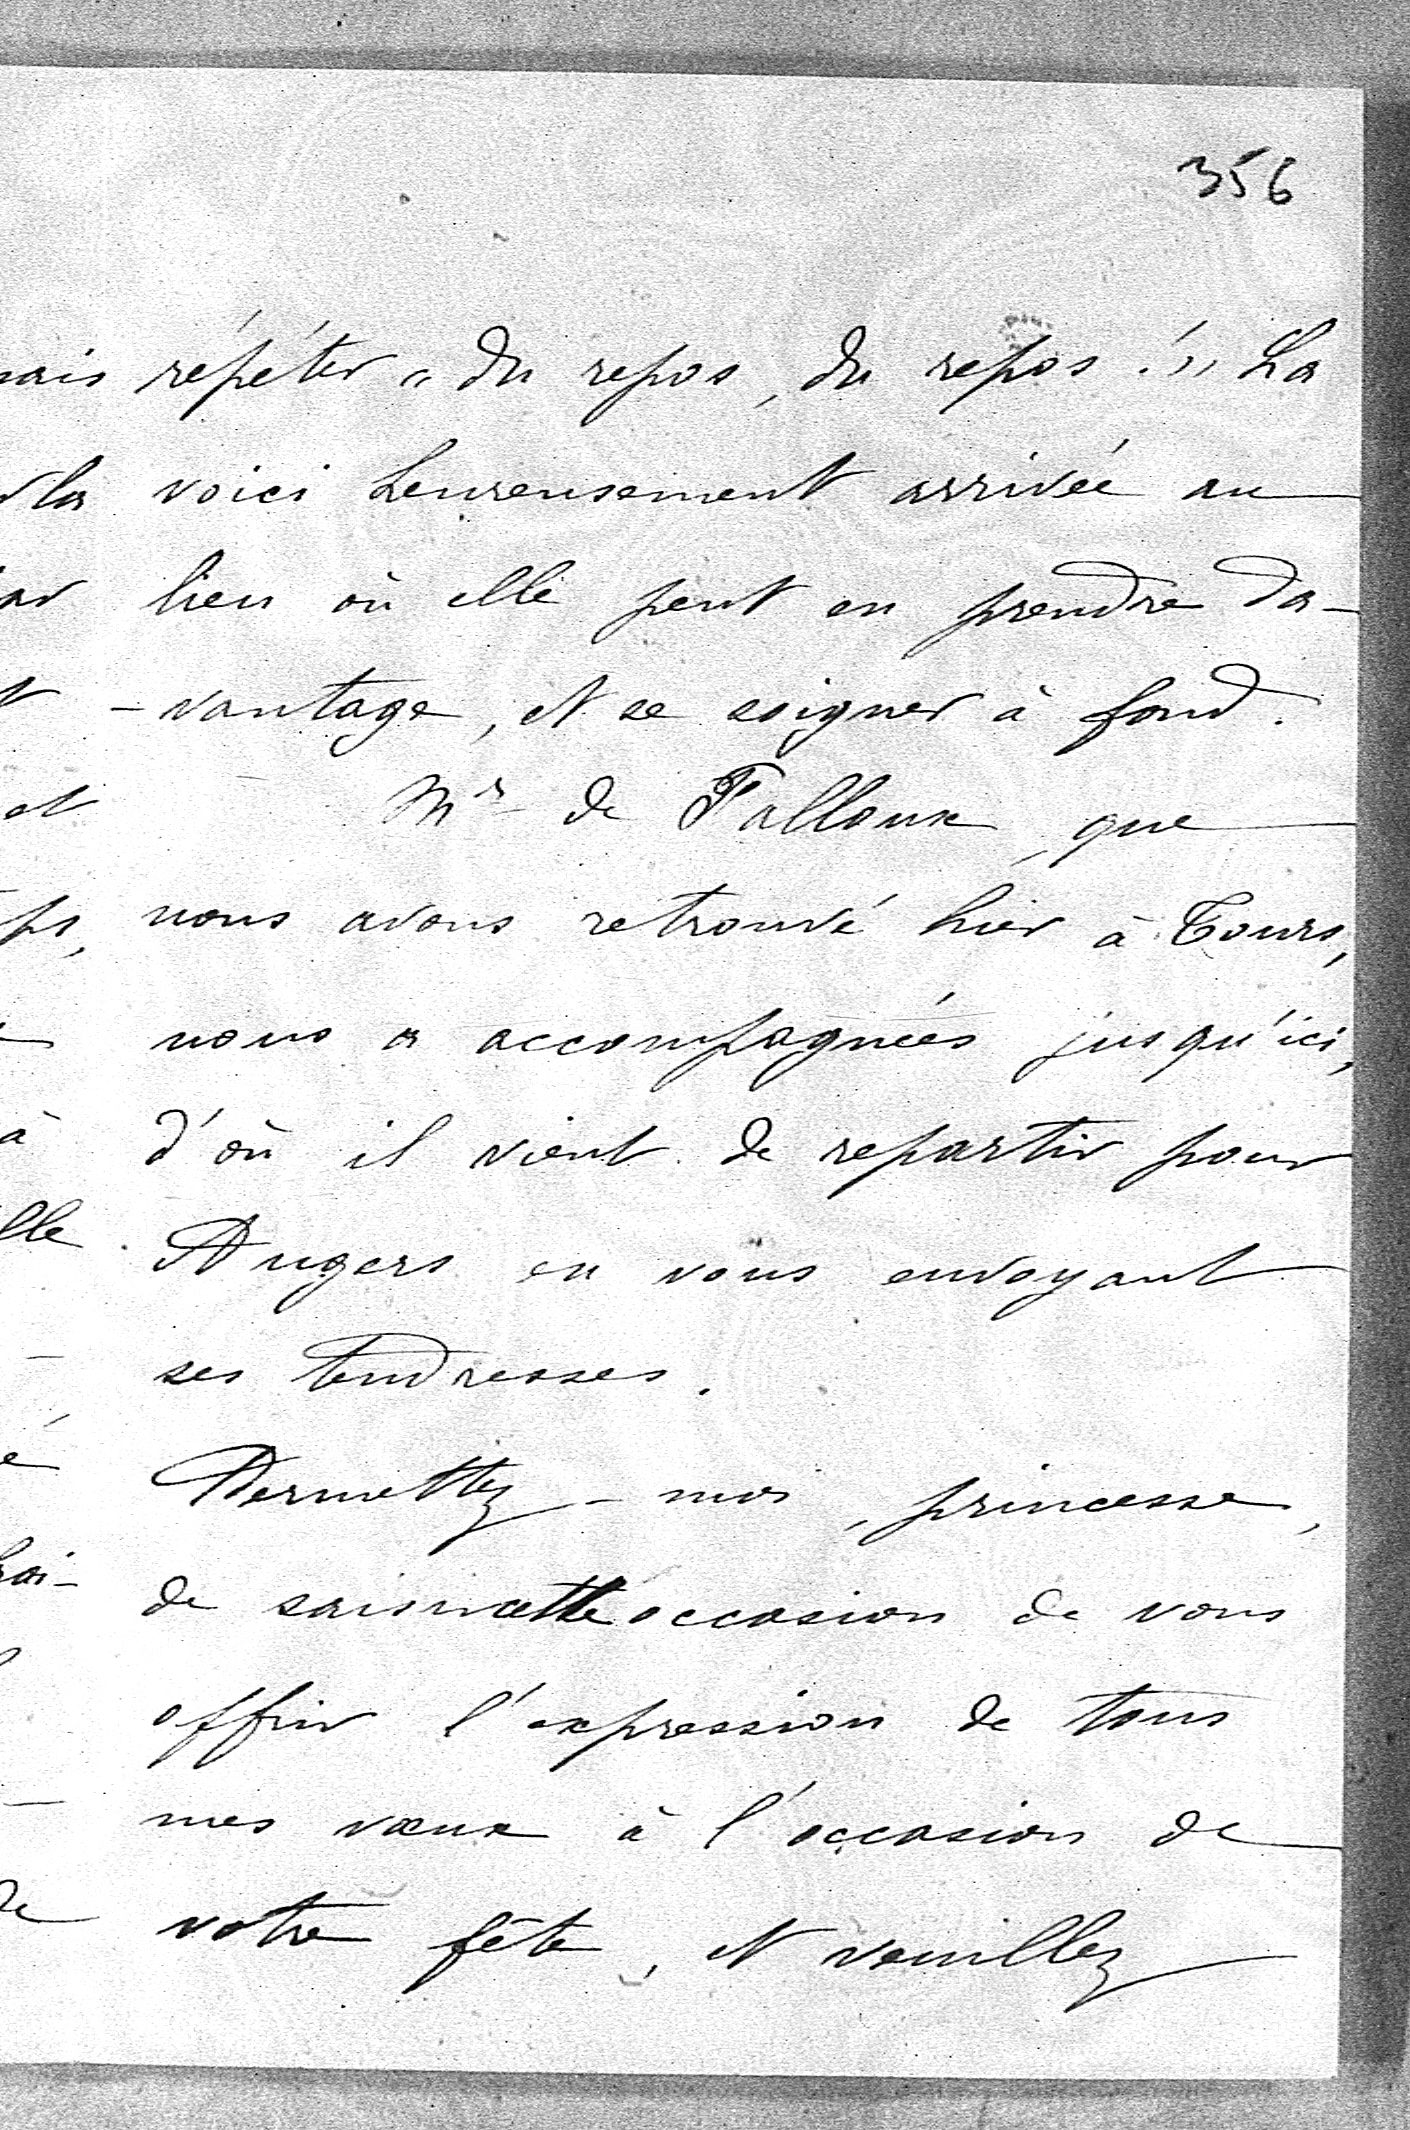 356
répéter "du repos, du repos !" La
voici heureusement arrivée au
lieu où elle peut en prendre da-
-vantage, et se soigner à fond.
Mr de Falloux, que
nous avons retrouvé hier à Tours,
nous a accompagnées jusqu'ici,
d'où il vient de repartir pour
Angers en vous envoyant
ses tendresses.
Permettez-moi, princesse,
de saisir cette occasion de vous
offrir l'expression de tous
mes vœux à l'occasion de
votre fête, et veuillez